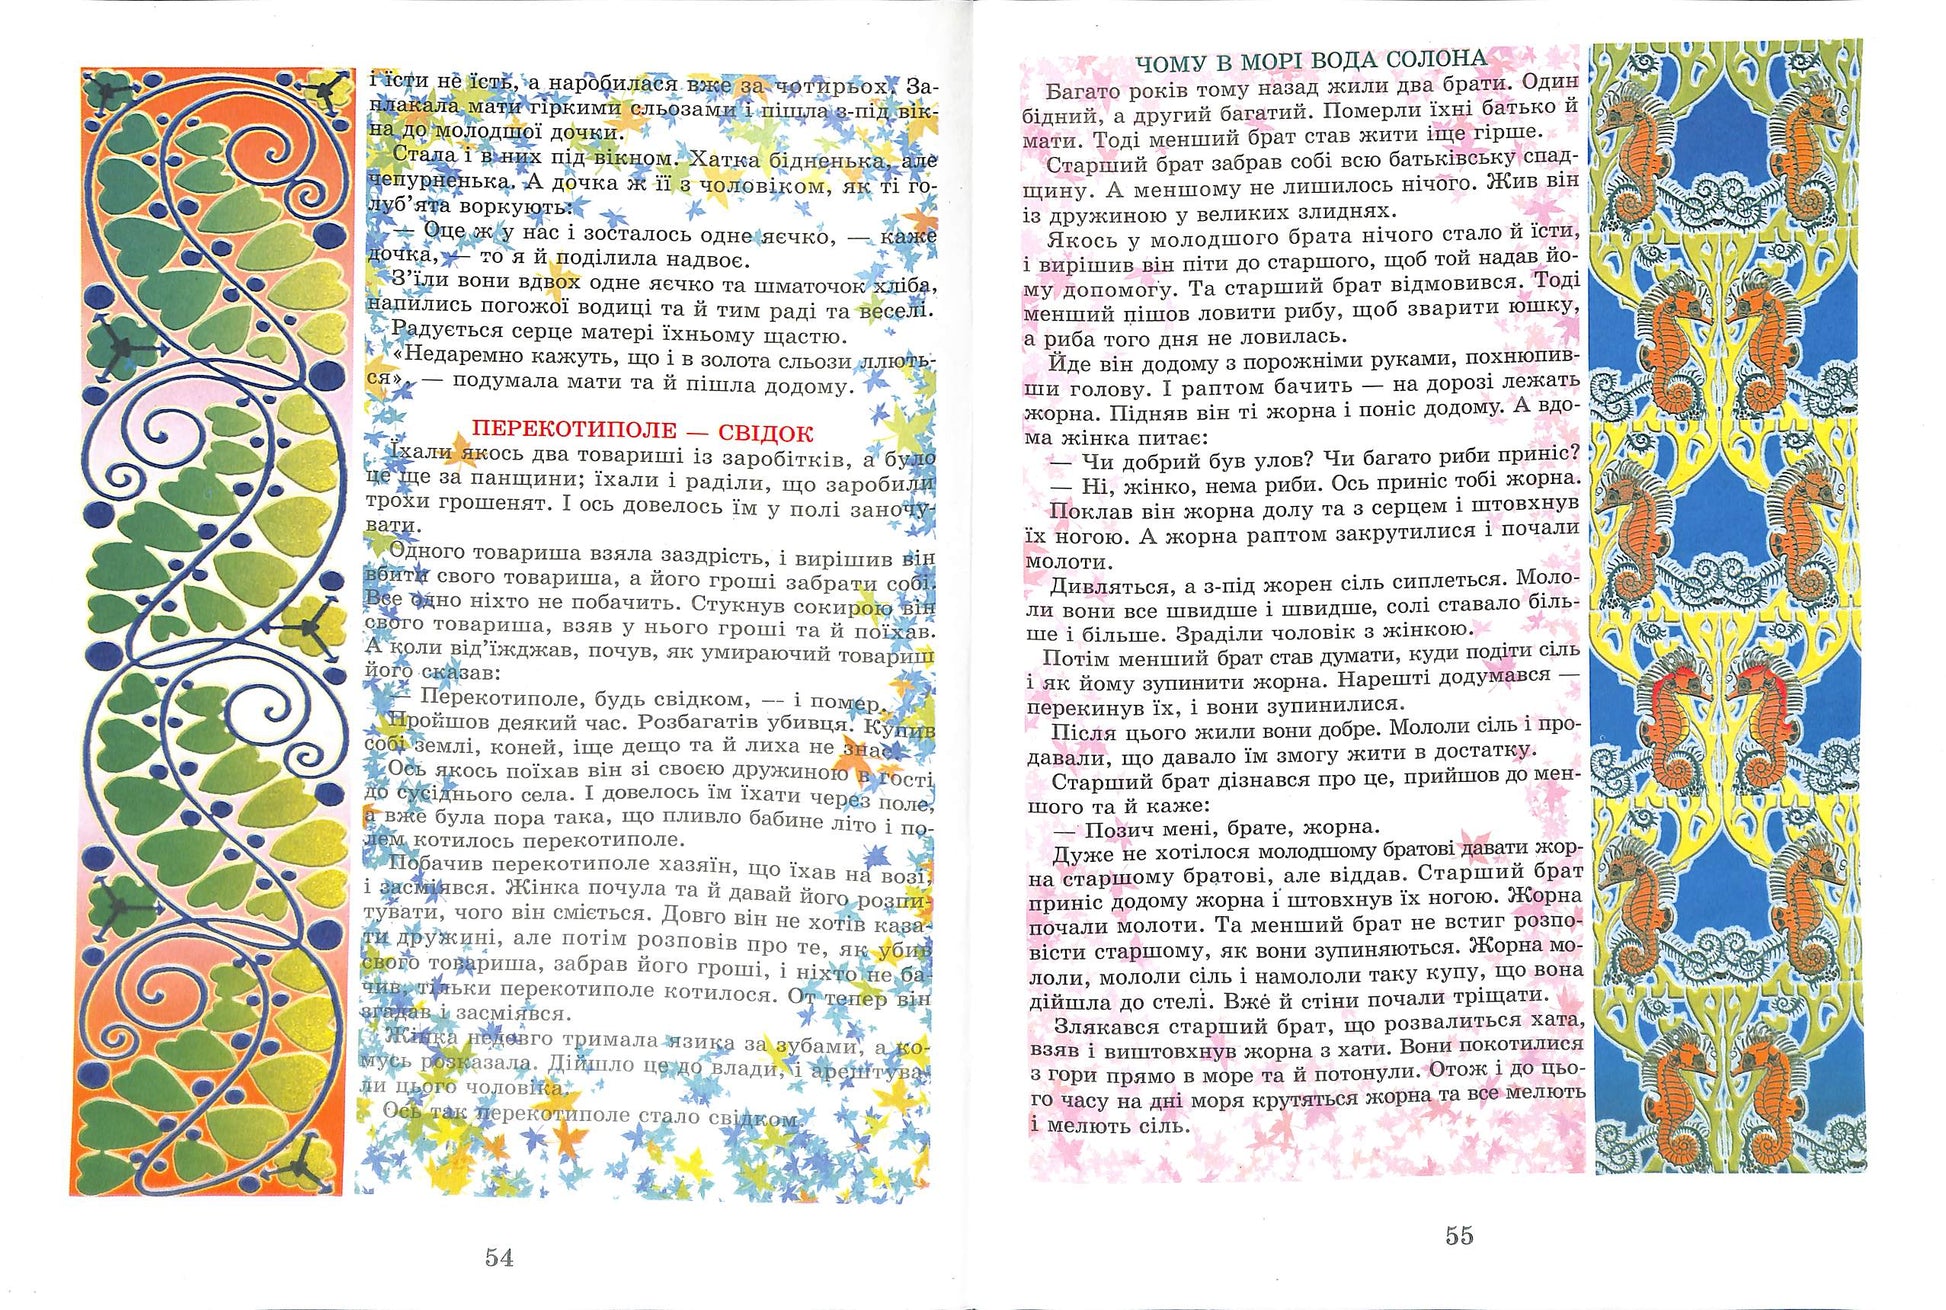 і їсти не їсть, а наробилася вже за чотирьох. За-
плакала мати гіркими сльозами і пішла з-під вік-
на до молодшої дочки.
Стала і в них під вікном. Хатка бідненька, але
чепурненька. А дочка ж її з чоловіком, як ті го-
луб’ята воркують:
— Оце ж у нас і зосталось одне яєчко, — каже
дочка, — то я й поділила надвоє.
З’їли вони вдвох одне яєчко та шматочок хліба,
напились погожої водиці та й тим раді та веселі.
Радується серце матері їхньому щастю.
«Недаремно кажуть, що і в золота сльози ллють-
ся», — подумала мати та й пішла додому.
ПЕРЕКОТИПОЛЕ — СВІДОК
Їхали якось два товариші із заробітків, а було
це ще за панщини; їхали і раділи, що заробили
трохи грошенят. І ось довелось їм у полі заночу-
вати.
Одного товариша взяла заздрість, і вирішив він
вбити свого товариша, а його гроші забрати собі.
Все одно ніхто не побачить. Стукнув сокирою він
свого товариша, взяв у нього гроші та й поїхав.
А коли від’їжджав, почув, як умираючий товариш
його сказав:
— Перекотиполе, будь свідком, — і помер.
Пройшов деякий час. Розбагатів убивця. Купив
собі землі, коней, іще дещо та й лиха не знає.
Ось якось поїхав він зі своєю дружиною в гості
до сусіднього села. І довелось їм їхати через поле,
а вже була пора така, що пливло бабине літо і по-
лем котилось перекотиполе.
Побачив перекотиполе хазяїн, що їхав на возі,
і засміявся. Жінка почула та й давай його розпи-
тувати, чого він сміється. Довго він не хотів каза-
ти дружині, але потім розповів про те, як убив
свого товариша, забрав його гроші, і ніхто не ба-
чив, тільки перекотиполе котилося. От тепер він
згадав і засміявся.
Жінка недовго тримала язика за зубами, а ко-
мусь розказала. Дійшло це до влади, і арештува-
ли цього чоловіка.
Ось так перекотиполе стало свідком.
54
ЧОМУ В МОРІ ВОДА СОЛОНА
Багато років тому назад жили два брати. Один
бідний, а другий багатий. Померли їхні батько й
мати. Тоді менший брат став жити іще гірше.
Старший брат забрав собі всю батьківську спад-
щину. А меншому не лишилось нічого. Жив він
із дружиною у великих злиднях.
Якось у молодшого брата нічого стало й їсти,
і вирішив він піти до старшого, щоб той надав йо-
му допомогу. Та старший брат відмовився. Тоді
менший пішов ловити рибу, щоб зварити юшку,
а риба того дня не ловилась.
Йде він додому з порожніми руками, похнюпив-
ши голову. І раптом бачить — на дорозі лежать
жорна. Підняв він ті жорна і поніс додому. А вдо-
ма жінка питає:
— Чи добрий був улов? Чи багато риби приніс?
— Ні, жінко, нема риби. Ось приніс тобі жорна.
Поклав він жорна долу та з серцем і штовхнув
їх ногою. А жорна раптом закрутилися і почали
молоти.
Дивляться, а з-під жорен сіль сиплеться. Моло-
ли вони все швидше і швидше, солі ставало біль-
ше і більше. Зраділи чоловік з жінкою.
Потім менший брат став думати, куди подіти сіль
і як йому зупинити жорна. Нарешті додумався —
перекинув їх, і вони зупинилися.
Після цього жили вони добре. Мололи сіль і про-
давали, що давало їм змогу жити в достатку.
Старший брат дізнався про це, прийшов до мен-
шого та й каже:
— Позич мені, брате, жорна.
Дуже не хотілося молодшому братові давати жор-
на старшому братові, але віддав. Старший брат
приніс додому жорна і штовхнув їх ногою. Жорна
почали молоти. Та менший брат не встиг розпо-
вісти старшому, як вони зупиняються. Жорна мо-
лоли, мололи сіль і намололи таку купу, що вона
дійшла до стелі. Вже й стіни почали тріщати.
Злякався старший брат, що розвалиться хата,
взяв і виштовхнув жорна з хати. Вони покотилися
з гори прямо в море та й потонули. Отож і до цьо-
го часу на дні моря крутяться жорна та все мелють
і мелють сіль.
55